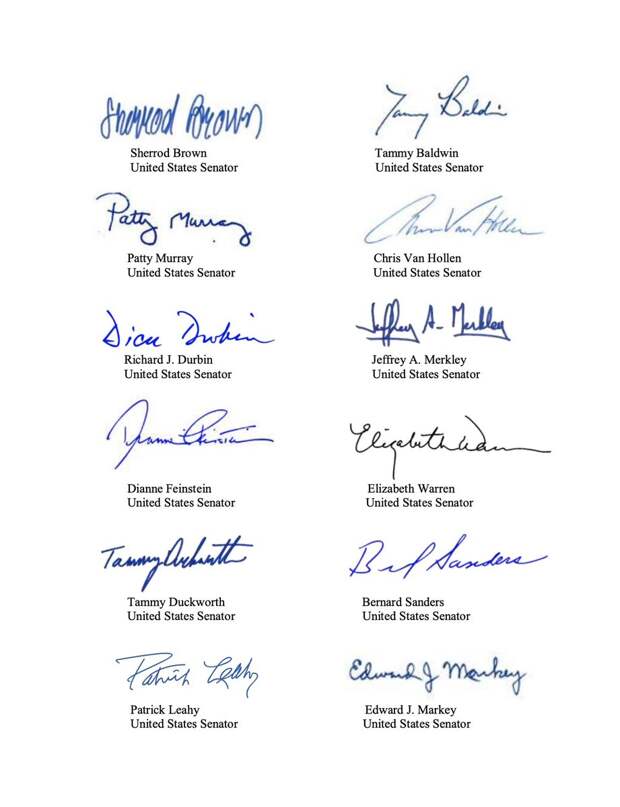 Sherrod Brown
Sherrod Brown
United States Senator
Tammy Baldwin
Tammy Baldwin
United States Senator
Patty Murray
Patty Murray
United States Senator
Chris Van Hollen
Chris Van Hollen
United States Senator
Dick Durbin
Richard J. Durbin
United States Senator
Jeffrey A. Merkley
Jeffrey A. Merkley
United States Senator
Dianne Feinstein
Dianne Feinstein
United States Senator
Elizabeth Warren
Elizabeth Warren
United States Senator
Tammy Duckworth
Tammy Duckworth
United States Senator
Sanders
Bernard Sanders
United States Senator
Patrick Leahy
Patrick Leahy
United States Senator
Edward J Markey
Edward J. Markey
United States Senator